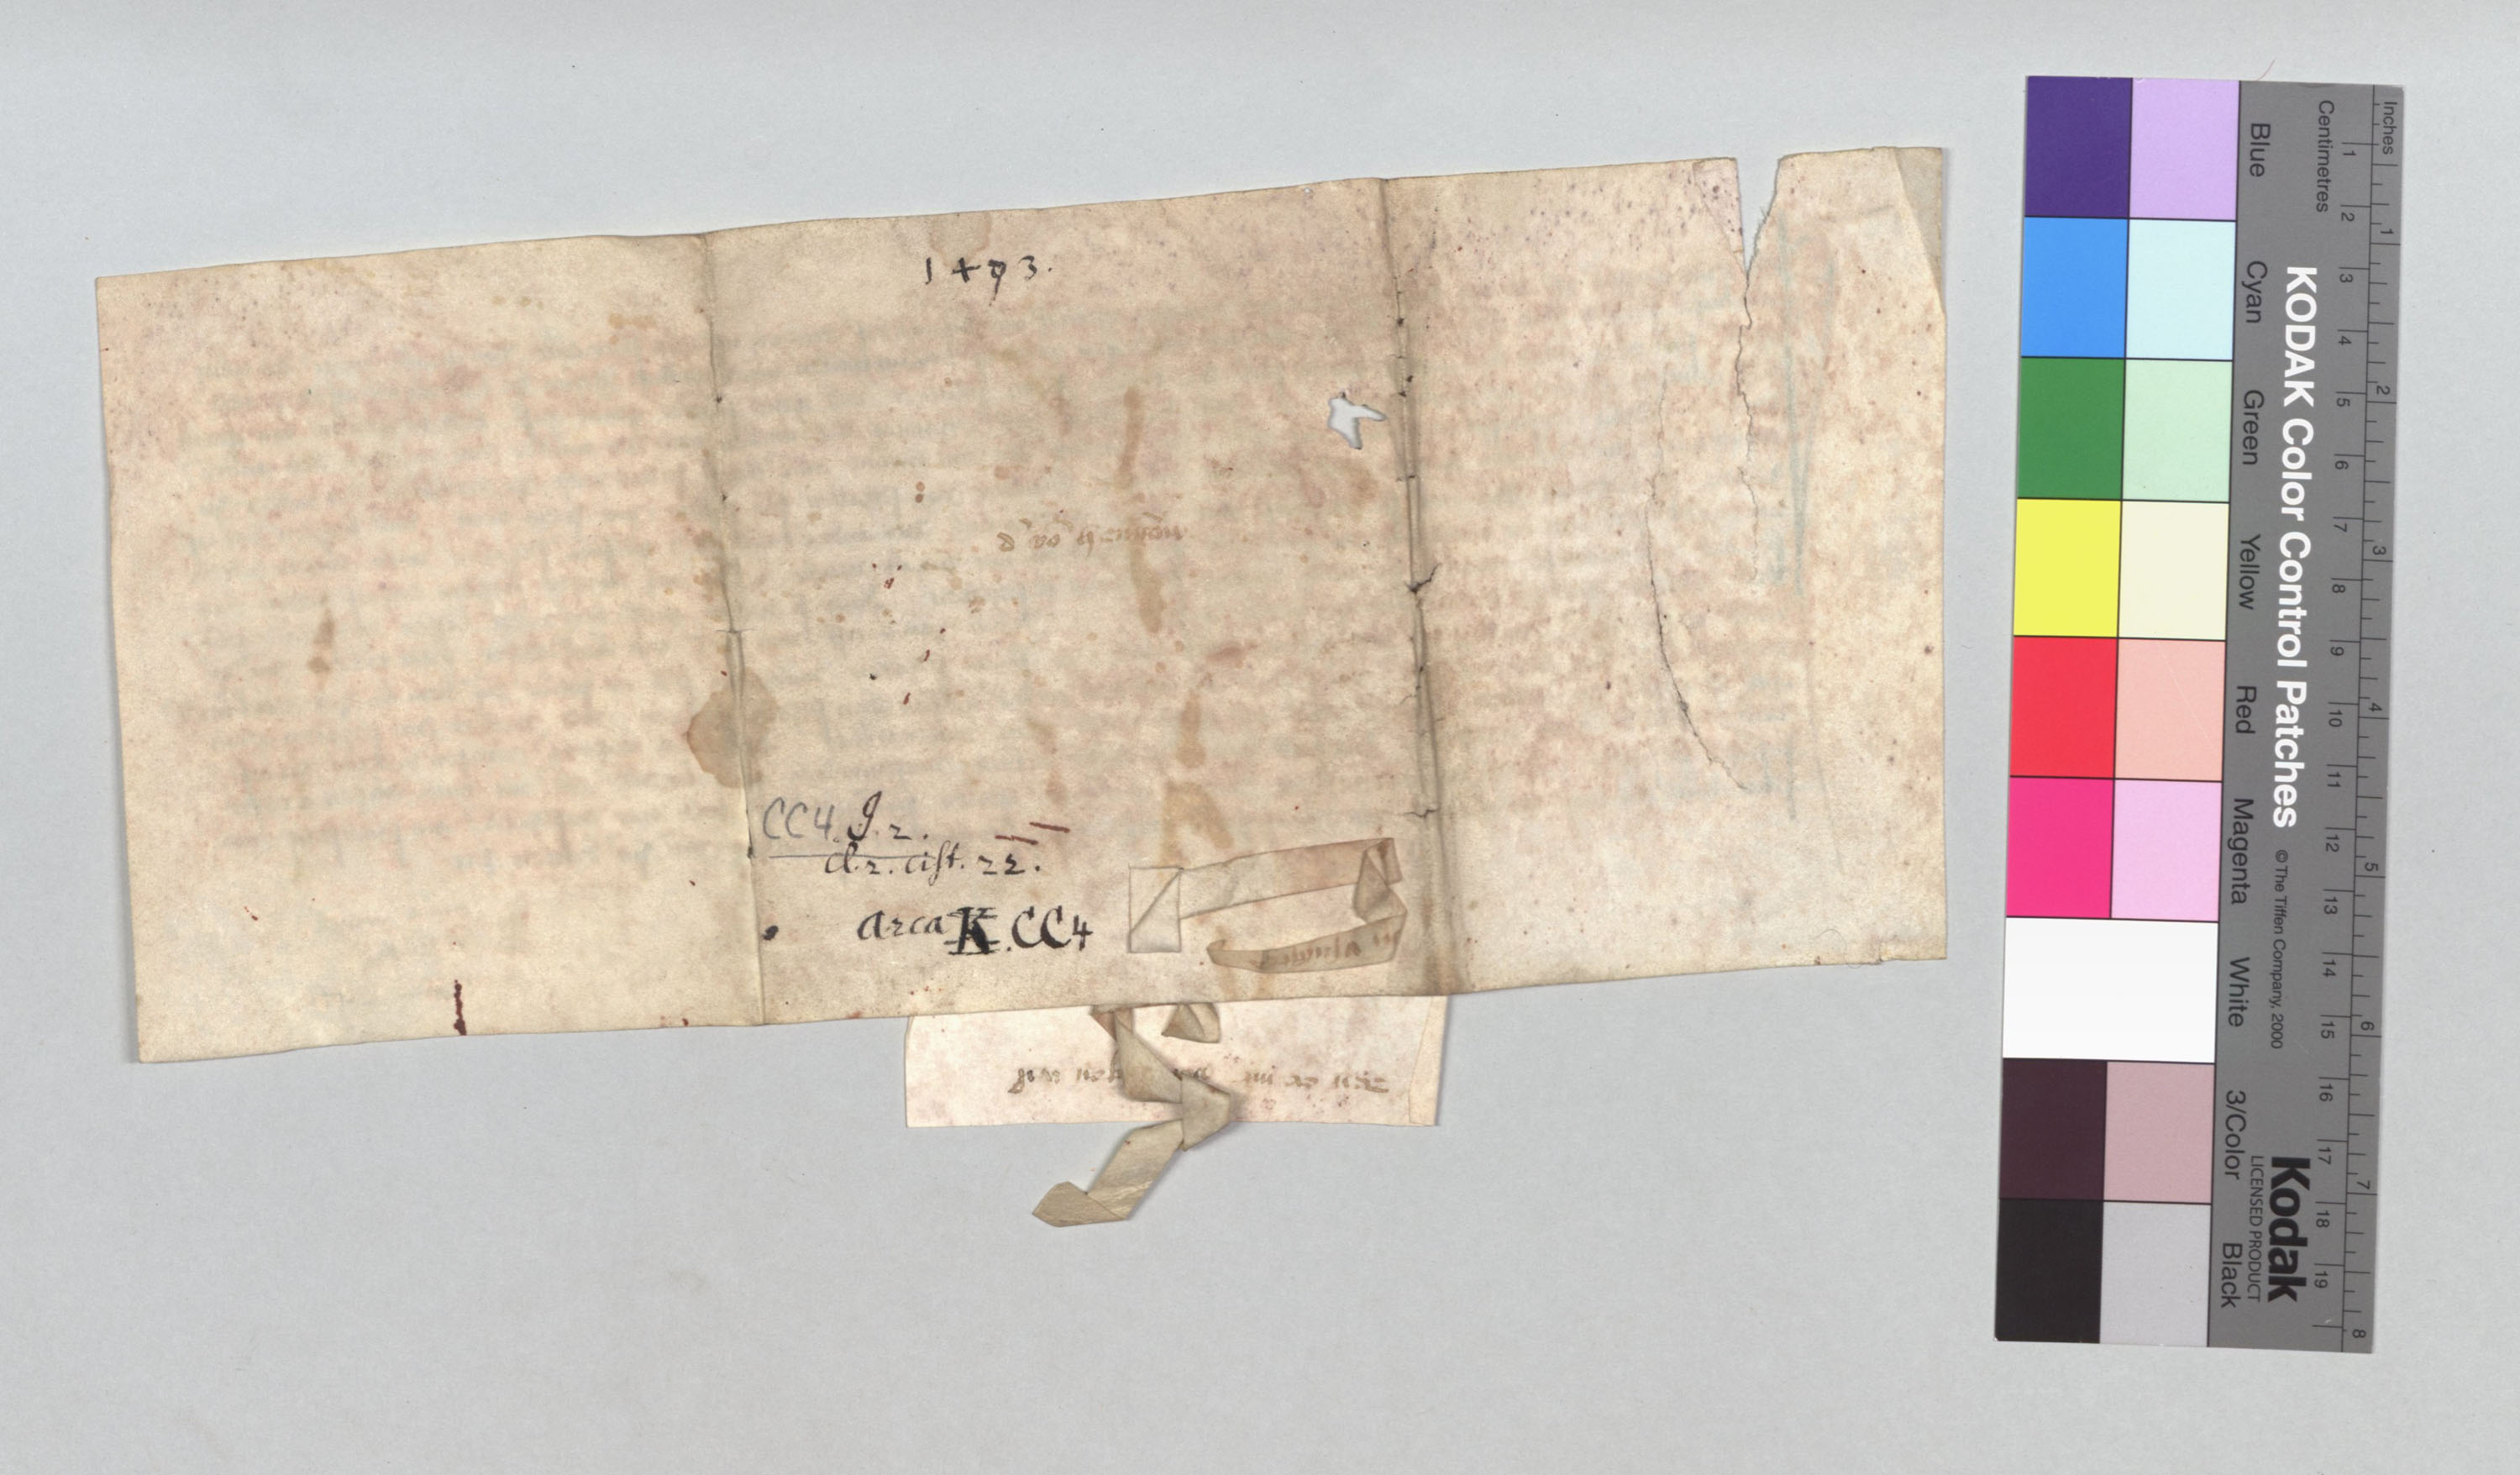 1493.
CC4 J. 2.
d. 2. cist. 22.
arca K. CC4
Inches
Centimetres
1 2 3 4 5 6 7 8 9 10 11 12 13 14 15 16 17 18 19
1 2 3 4 5 6 7 8
KODAK Color Control Patches © The Tiffen Company, 2000
Kodak
LICENSED PRODUCT
Blue
Cyan
Green
Yellow
Red
Magenta
White
3/Color
Black